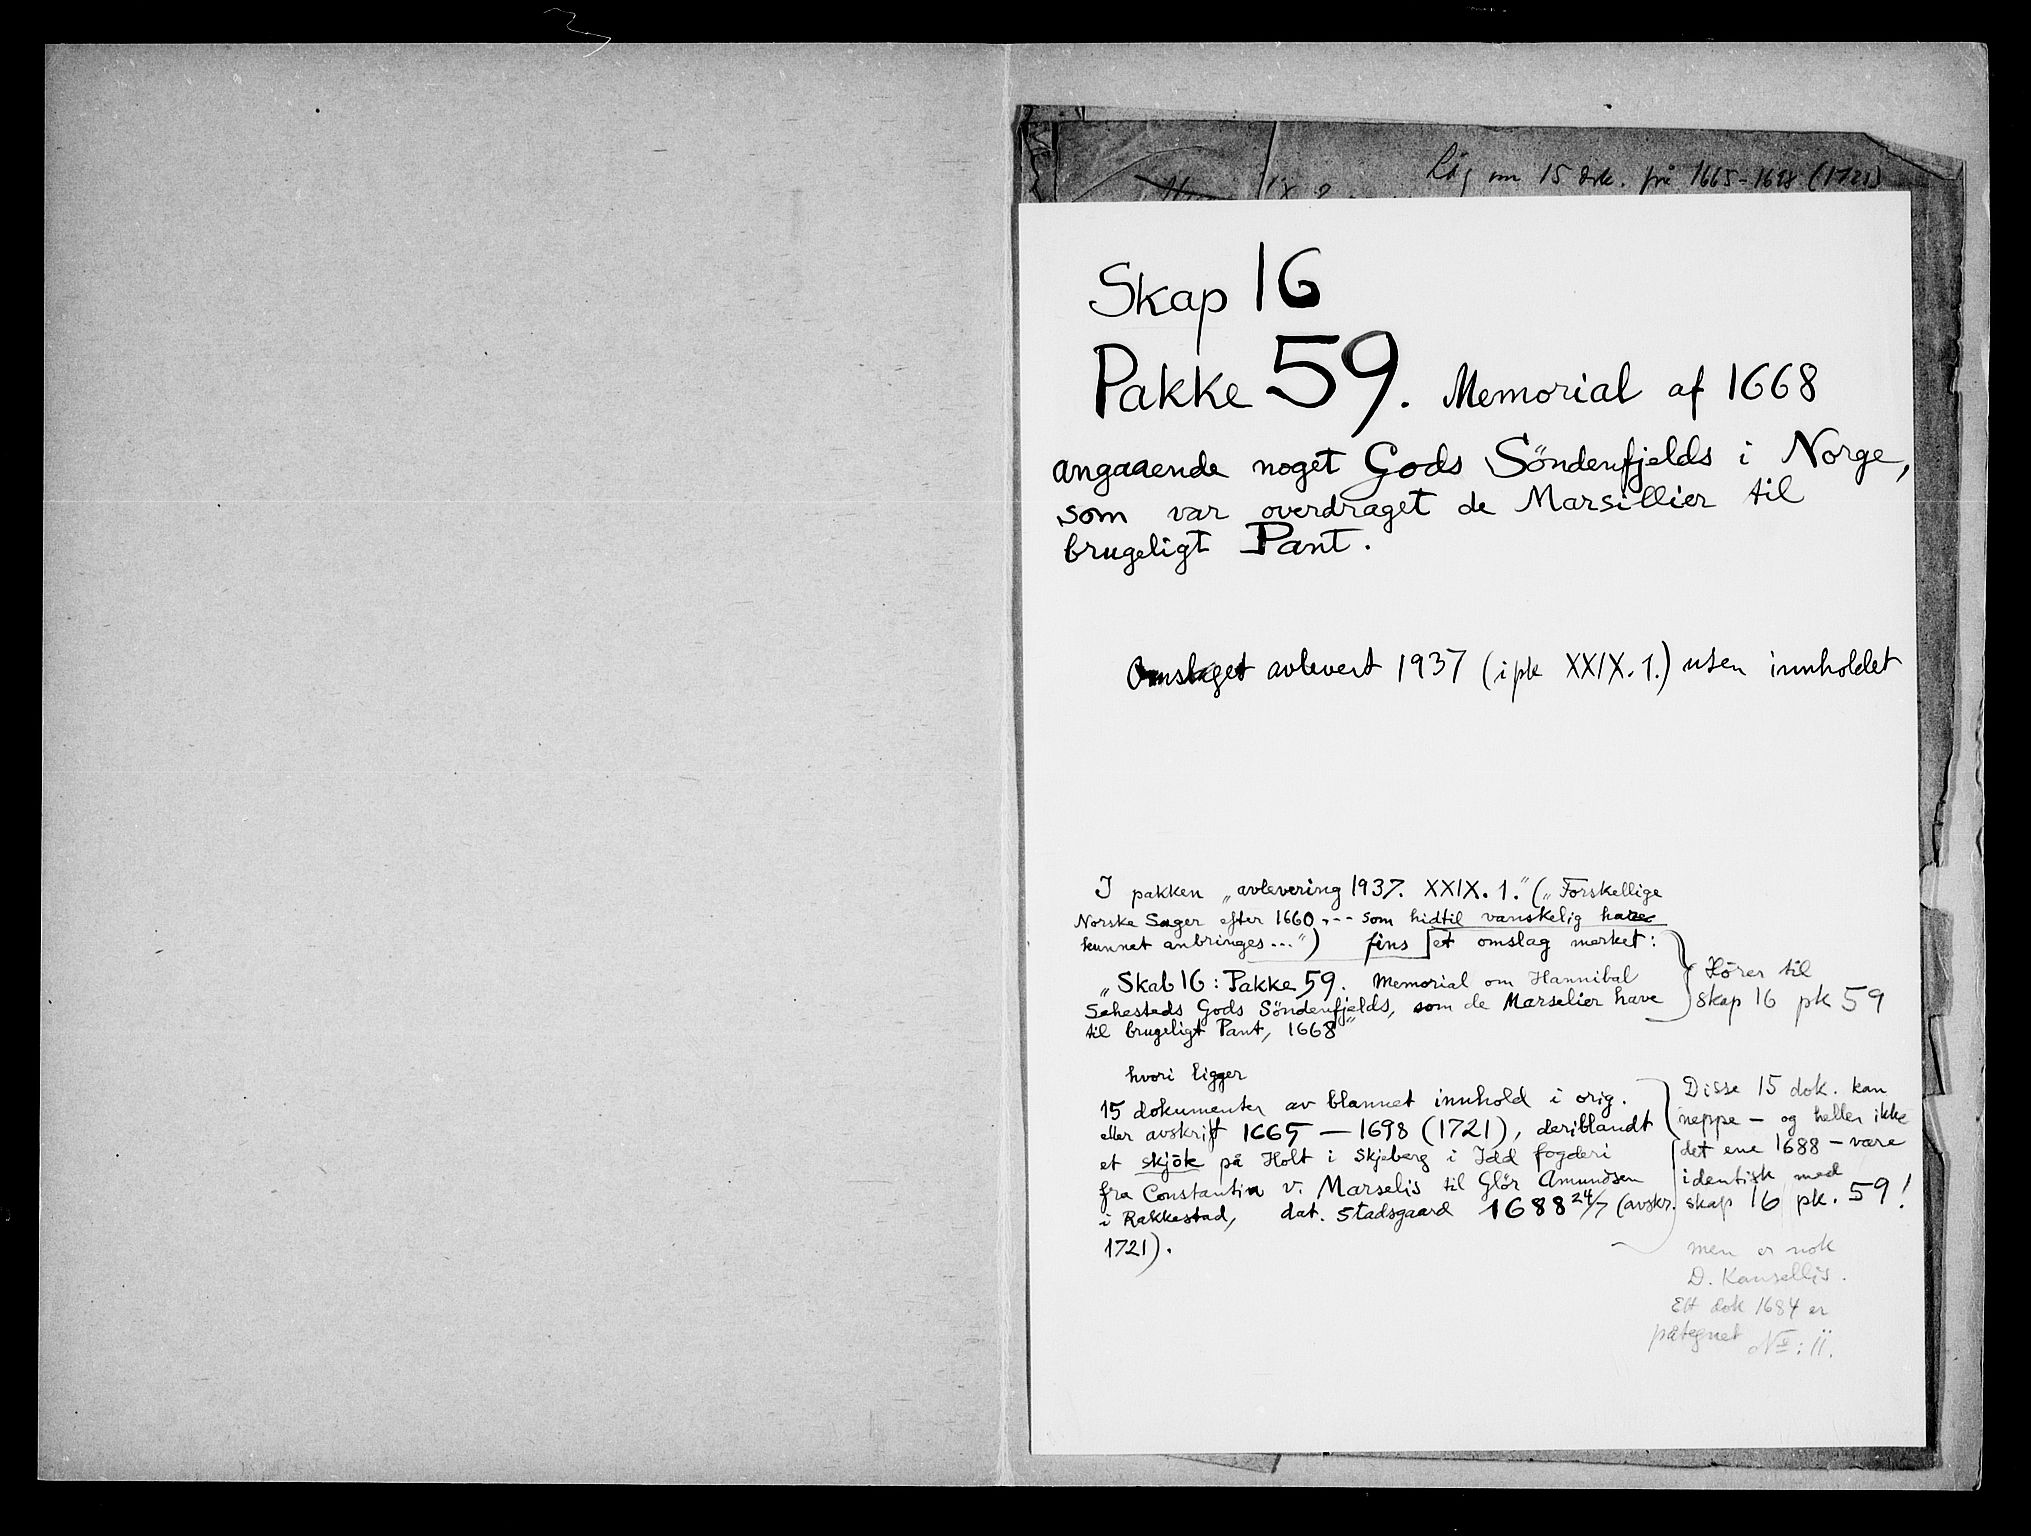 Låg om 15 dok. frå 1665-1698 (1721)
Skap 16
Pakke 59. Memorial af 1668
angaaende noget Gods Söndenfjelds i Norge,
som var overdraget de Marsillier til
brugeligt Pant.
Omslaget avlevert 1937 (i pk XXIX. 1.) uten innholdet
I pakken „avlevering 1937. XXIX. 1." („Forskellige
Norske Sager efter 1660 --- som hidtil vanskelig have
kunnet anbringes...") fins et omslag merket:
„Skab 16: Pakke 59. Memorial om Hannibal
Sehesteds Gods Söndenfjelds, som de Marselier have
til brugeligt Pant, 1668"
Hörer til
skap 16 pk 59
hvori ligger
15 dokumenter av blannet innhold i orig.
eller avskrift 1665 — 1698 (1721), deriblandt
et skjök på Holt i Skjeberg i Idd fogderi
fra Constantin v. Marselis til Glör Amundsen
i Rakkestad, dat. Stadsgaard 1688 24/7 (avskr.
1721).
Disse 15 dok. kan
neppe — og heller ikke
det ene 1688 — være
identisk med
skap 16 pk. 59!
men er nok
D. Kansellis.
Ett dok 1684 er
påtegnet No: 11.